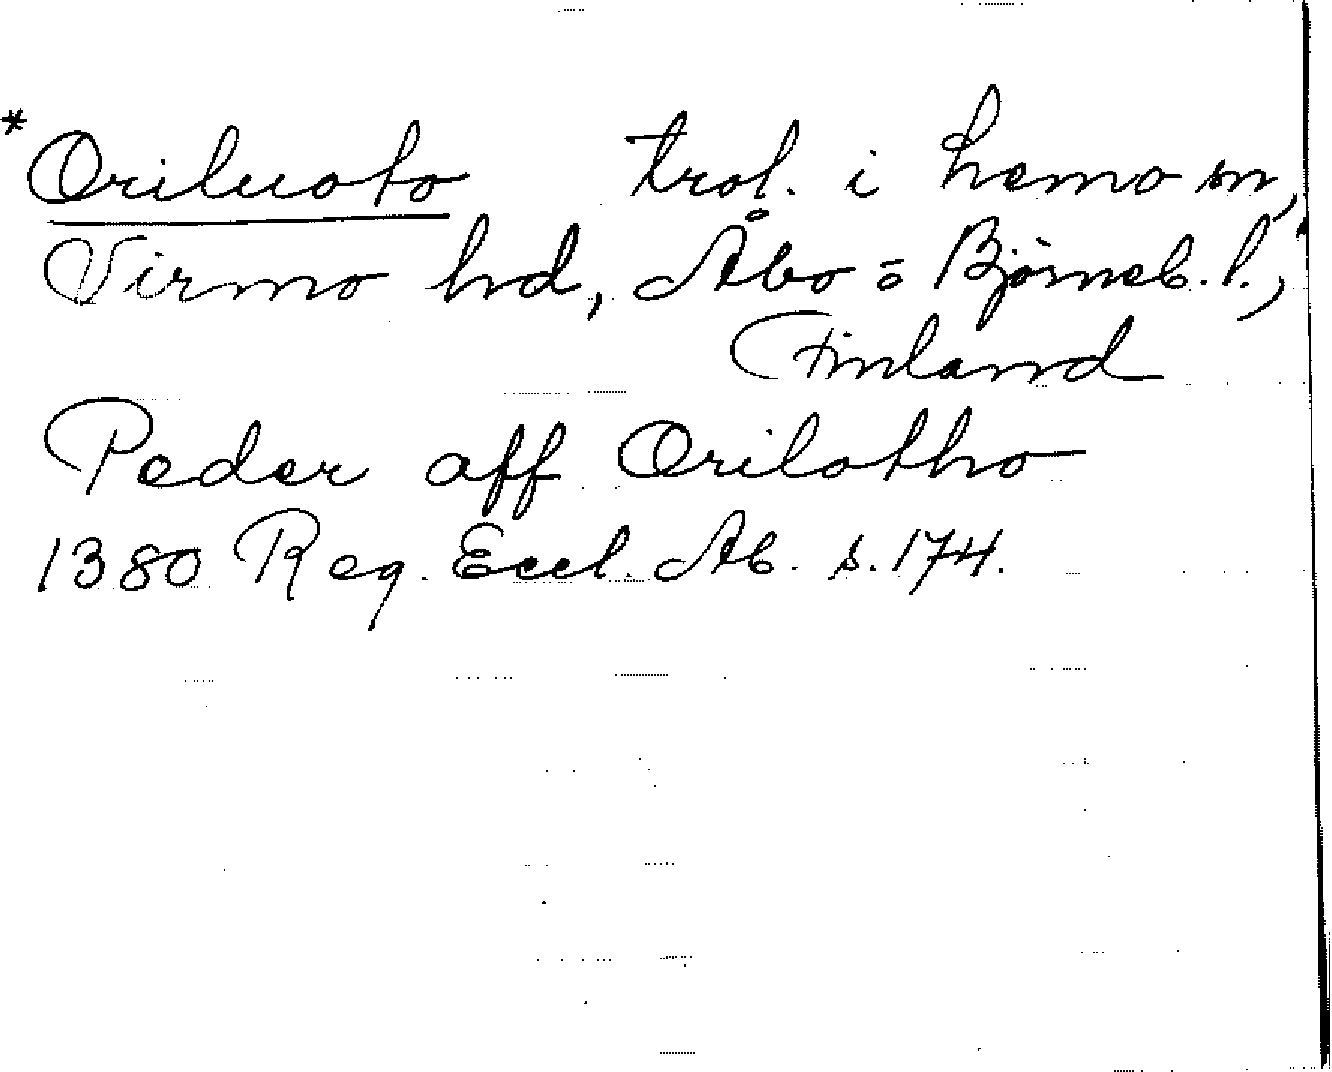 *Oriluoto trol. i Lemo sn,
Virmo hd, Åbo = Björneb. l.,
Finland
Peder aff Orilotho
1380 Reg. Eccl. Ab. s. 174.